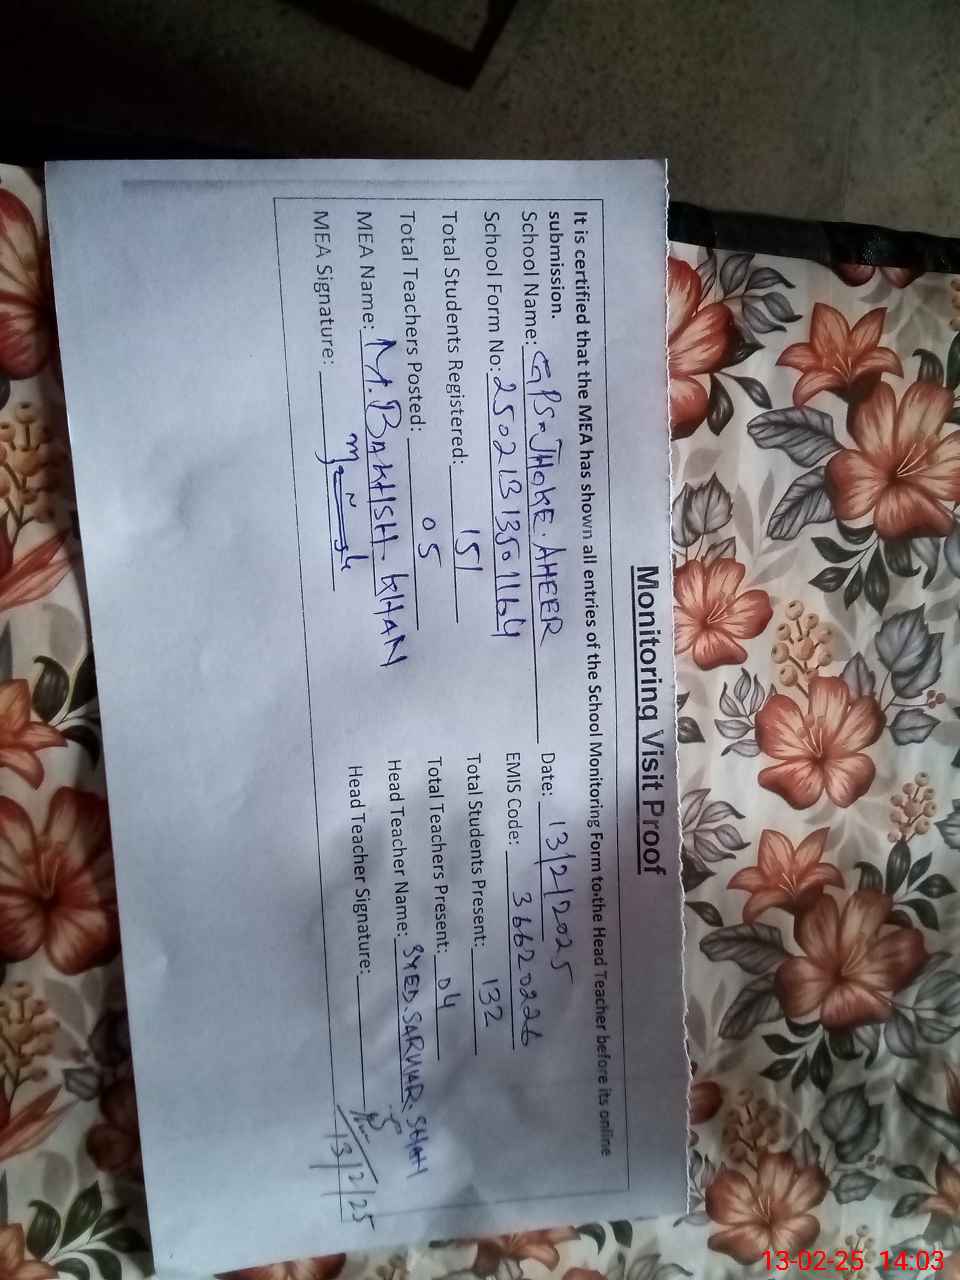 Monitoring Visit Proof
It is certified that the MEA has shown all entries of the School Monitoring Form to the Head Teacher before its online
submission.
School Name: GPS. JHOKE. AHEER Date: 13/2/2025
School Form No: 25021313501164 EMIS Code: 36620226
Total Students Registered: 151 Total Students Present: 132
Total Teachers Posted: 05 Total Teachers Present: 04
MEA Name: M. BAKHSH KHAN Head Teacher Name: SYED. SARWAR. SHAH
MEA Signature: Head Teacher Signature:
13/2/25
13-02-25 14:03